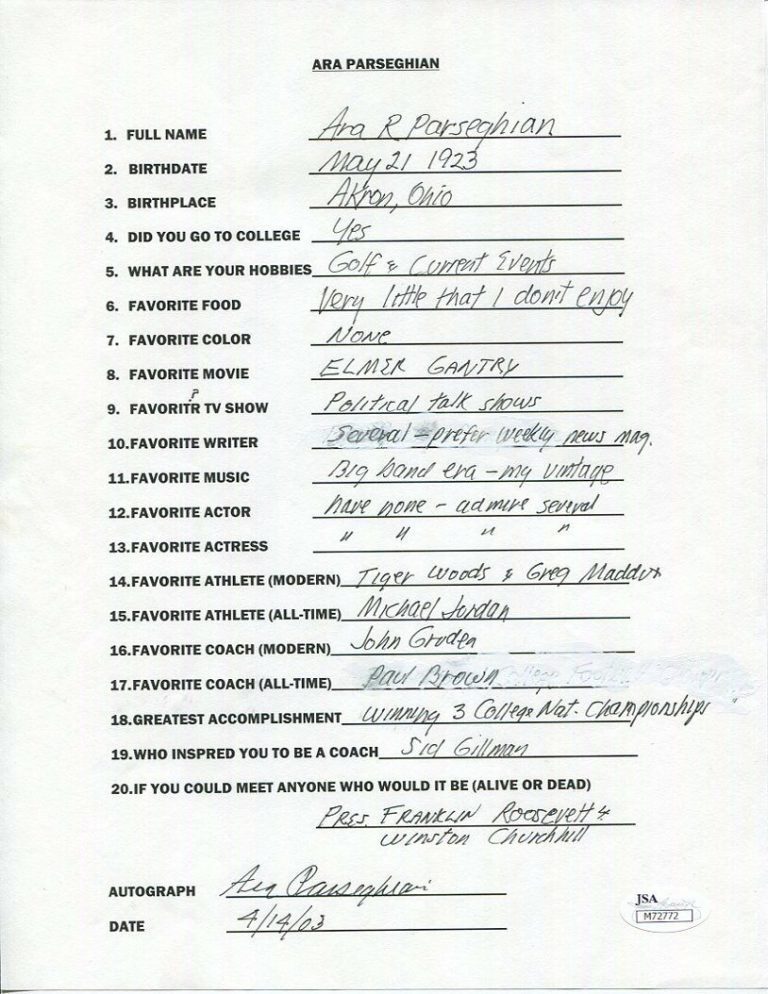 ARA PARSEGHIAN
1. FULL NAME Ara R Parseghian
2. BIRTHDATE May 21 1923
3. BIRTHPLACE Akron, Ohio
4. DID YOU GO TO COLLEGE Yes
5. WHAT ARE YOUR HOBBIES Golf & Current Events
6. FAVORITE FOOD Very little that I don't enjoy
7. FAVORITE COLOR None
8. FAVORITE MOVIE ELMER GANTRY
?
9. FAVORITR TV SHOW Political talk shows
10.FAVORITE WRITER Several - prefer weekly news mag.
11.FAVORITE MUSIC Big band era - my vintage
12.FAVORITE ACTOR have none - admire several
13.FAVORITE ACTRESS " " " "
14.FAVORITE ATHLETE (MODERN) Tiger Woods & Greg Maddux
15.FAVORITE ATHLETE (ALL-TIME) Michael Jordan
16.FAVORITE COACH (MODERN) John Gruden
17.FAVORITE COACH (ALL-TIME) Paul Brown
18.GREATEST ACCOMPLISHMENT Winning 3 College Nat. Championships "
19.WHO INSPRED YOU TO BE A COACH Sid Gillman
20.IF YOU COULD MEET ANYONE WHO WOULD IT BE (ALIVE OR DEAD)
PRES. FRANKLIN Roosevelt &
Winston Churchill
AUTOGRAPH Ara Parseghian
DATE 4/14/03
JSA
M72772